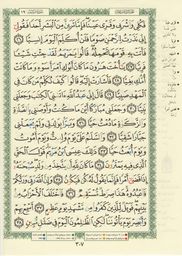 فَكُلِي وَاشْرَبِي وَقَرِّي عَيْنًا فَإِمَّا تَرَيِنَّ مِنَ الْبَشَرِ أَحَدًا فَقُولِي
إِنِّي نَذَرْتُ لِلرَّحْمَٰنِ صَوْمًا فَلَنْ أُكَلِّمَ الْيَوْمَ إِنسِيًّا ٢٦
فَأَتَتْ بِهِ قَوْمَهَا تَحْمِلُهُ قَالُوا يَٰمَرْيَمُ لَقَدْ جِئْتِ شَيْئًا
فَرِيًّا ٢٧ يَٰأُخْتَ هَٰرُونَ مَا كَانَ أَبُوكِ امْرَأَ سَوْءٍ وَمَا كَانَتْ
أُمُّكِ بَغِيًّا ٢٨ فَأَشَارَتْ إِلَيْهِ قَالُوا كَيْفَ نُكَلِّمُ مَن كَانَ فِي
الْمَهْدِ صَبِيًّا ٢٩ قَالَ إِنِّي عَبْدُ اللَّهِ ءَاتَىٰنِيَ الْكِتَٰبَ وَجَعَلَنِي
نَبِيًّا ٣٠ وَجَعَلَنِي مُبَارَكًا أَيْنَ مَا كُنتُ وَأَوْصَٰنِي بِالصَّلَوٰةِ
وَالزَّكَوٰةِ مَا دُمْتُ حَيًّا ٣١ وَبَرًّا بِوَٰلِدَتِي وَلَمْ يَجْعَلْنِي
جَبَّارًا شَقِيًّا ٣٢ وَالسَّلَٰمُ عَلَيَّ يَوْمَ وُلِدتُّ وَيَوْمَ أَمُوتُ
وَيَوْمَ أُبْعَثُ حَيًّا ٣٣ ذَٰلِكَ عِيسَى ابْنُ مَرْيَمَ قَوْلَ الْحَقِّ
الَّذِي فِيهِ يَمْتَرُونَ ٣٤ مَا كَانَ لِلَّهِ أَن يَتَّخِذَ مِن وَلَدٍ سُبْحَٰنَهُ
إِذَا قَضَىٰ أَمْرًا فَإِنَّمَا يَقُولُ لَهُ كُن فَيَكُونُ ٣٥ وَإِنَّ اللَّهَ رَبِّي
وَرَبُّكُمْ فَاعْبُدُوهُ هَٰذَا صِرَٰطٌ مُّسْتَقِيمٌ ٣٦ فَاخْتَلَفَ الْأَحْزَابُ مِن
بَيْنِهِمْ فَوَيْلٌ لِّلَّذِينَ كَفَرُوا مِن مَّشْهَدِ يَوْمٍ عَظِيمٍ ٣٧ أَسْمِعْ بِهِمْ
وَأَبْصِرْ يَوْمَ يَأْتُونَنَا لَٰكِنِ الظَّٰلِمُونَ الْيَوْمَ فِي ضَلَٰلٍ مُّبِينٍ ٣٨
٣٠٧